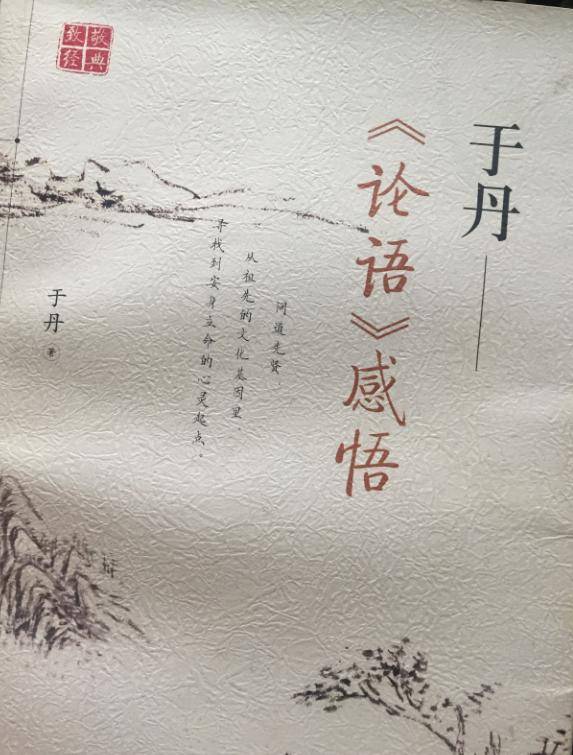 于丹
《论语》感悟
问道先贤
从祖先的文化基因里，
寻找到安身立命的心灵起点。
于丹 著
致敬
经典